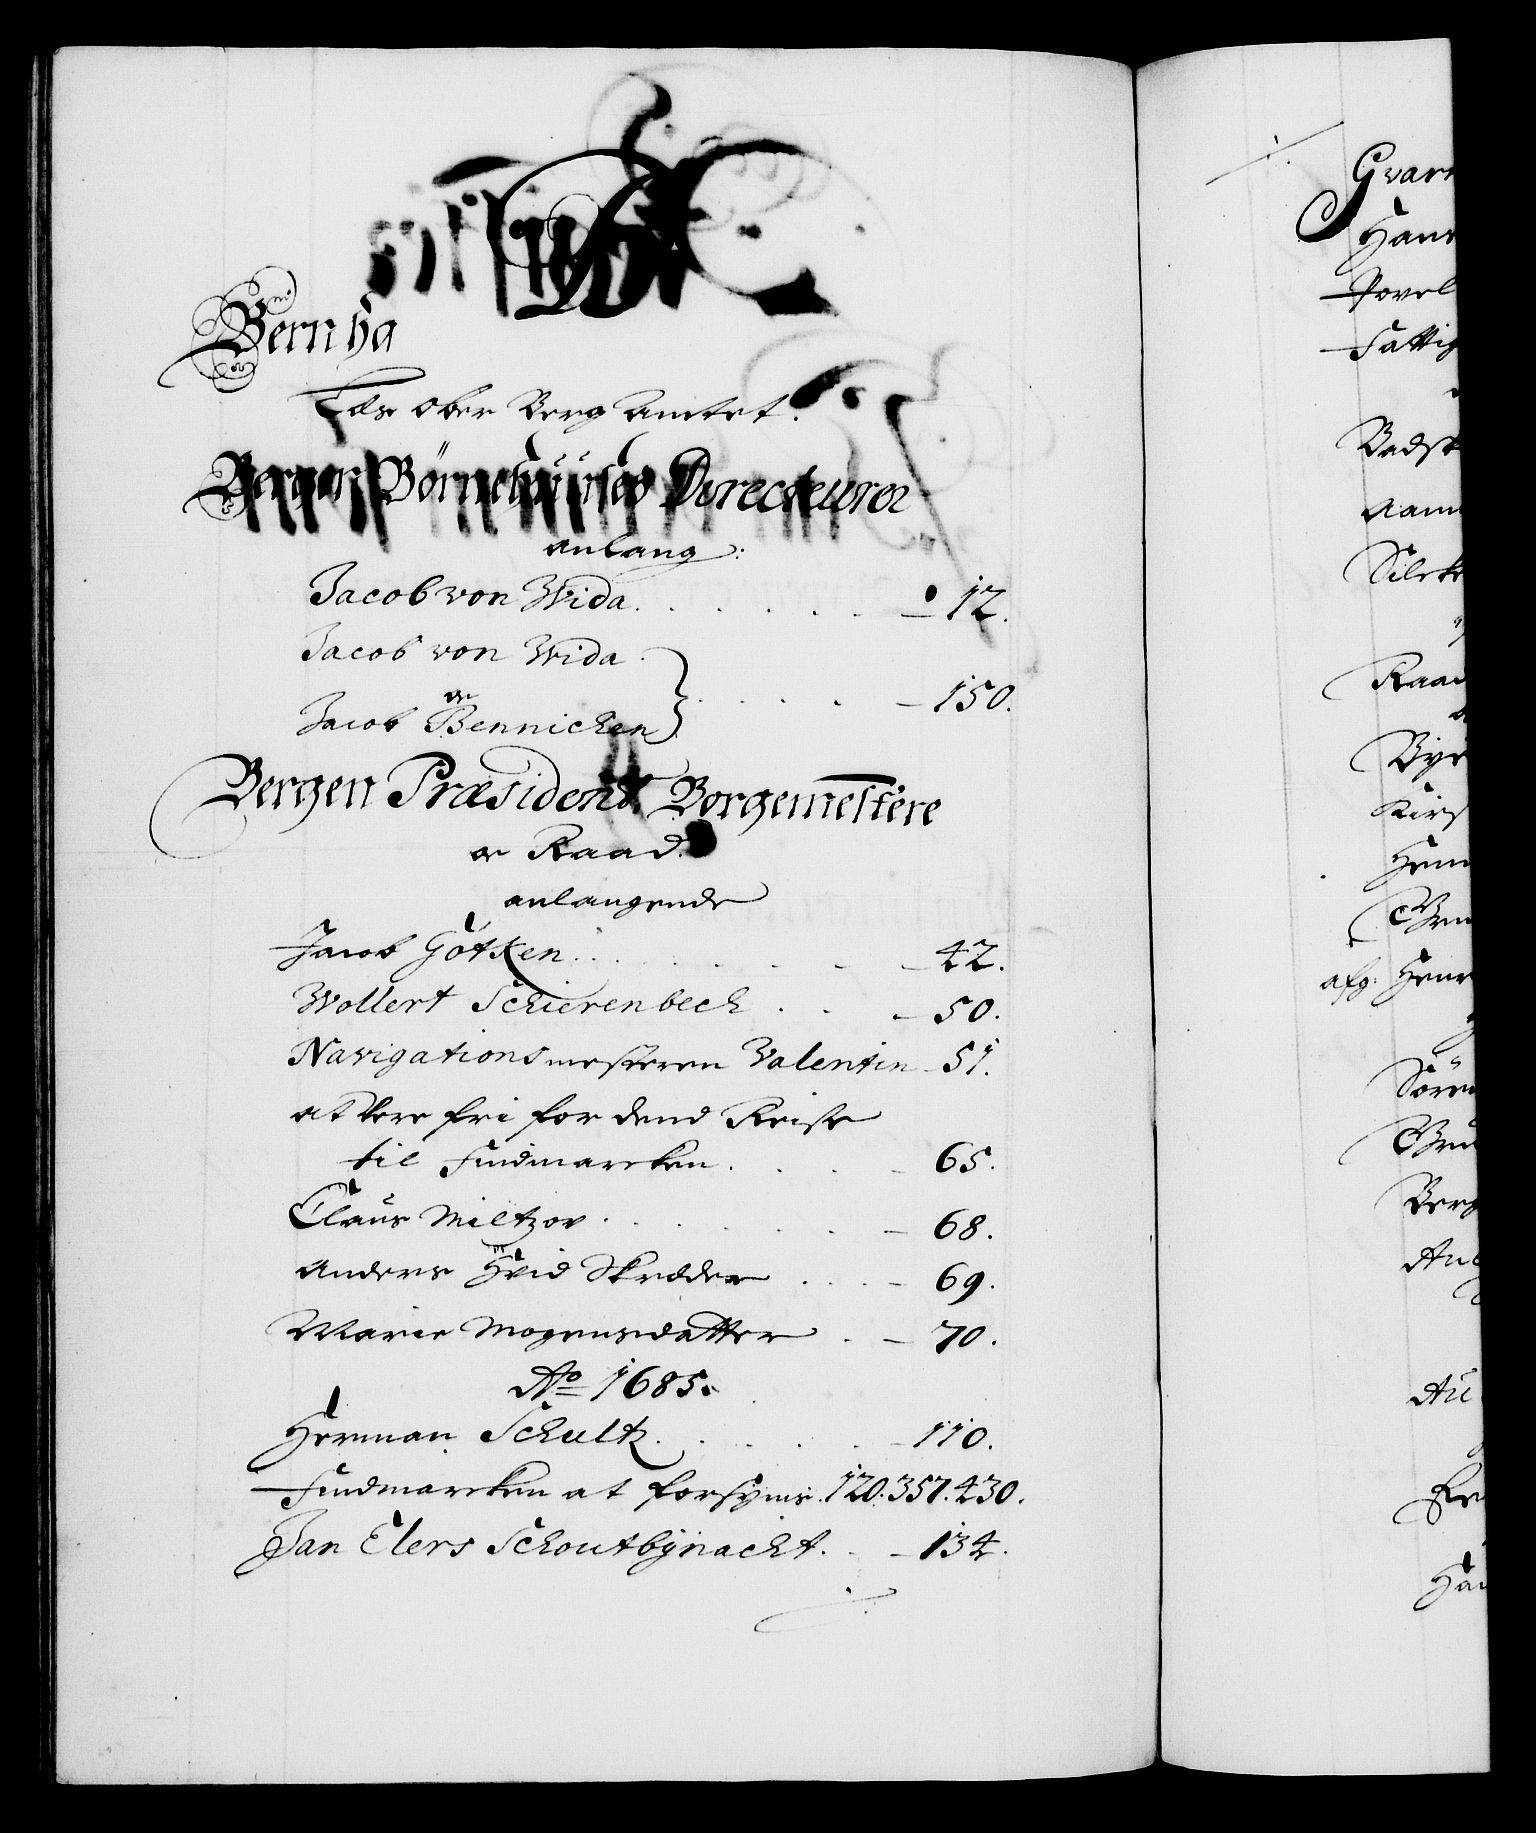 B
Bernha
See Ober Berg Amtet.
Bergen Börnehuuses Directeurer
anlang:
Jacob von Wida. 12.
Jacob von Wida
Jacob Bennichen 150.
Bergen Præsident Borgemestere
oc Raad.
anlangende
Jacob Götken 42.
Wollert Schierenbech 50.
Navigationsmesteren Valentin 51.
at være fri for dend Reise
til Findmarcken 65.
Claus Miltzov 68.
Anders Hvid Skræder 69.
Marie Mogensdatter 70.
Ao 1685.
Herman Schultz 110.
Findmarcken at forsyne. 120. 357. 430.
Jan Elers Schoutbynacht. 134.
Hans
Povel
Fattig
Raad
Bye
Kirs
afg: Henr
Sören
Berg